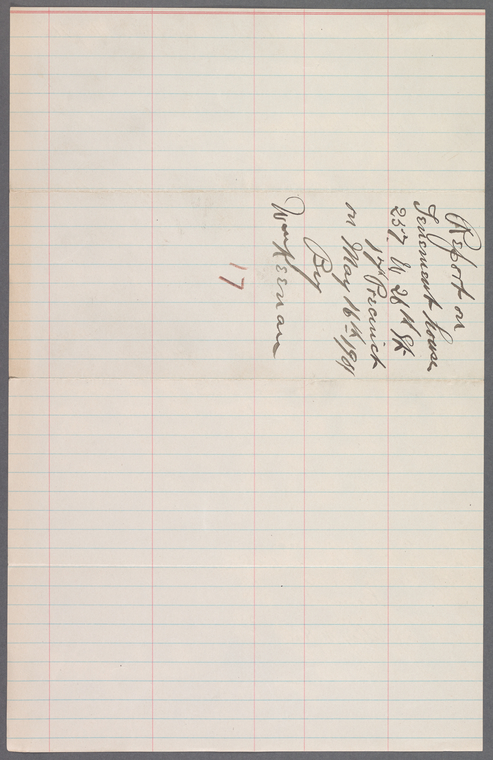 Report on
Tenement house
257. W 28th St
17th Precinct
on May 16th 1901
By
Wm Keenan
17